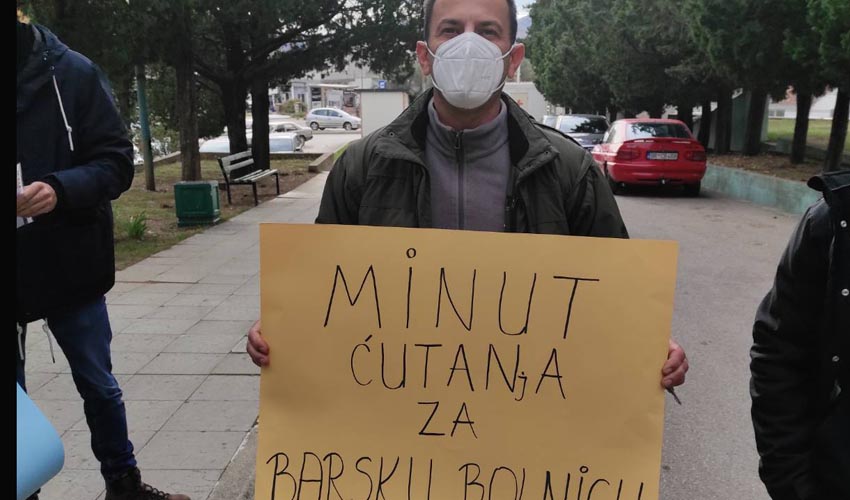 MiNUT
ĆUTANjA
ZA
BARSKU BOLNICU